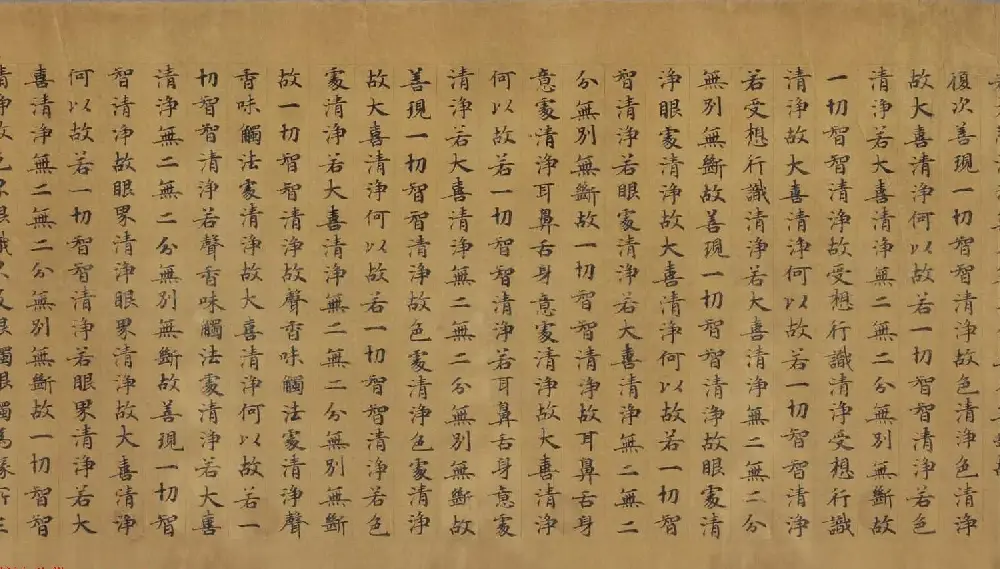 復次善現一切智智清淨故色清淨色清淨
故大喜清淨何以故若一切智智清淨若色
清淨若大喜清淨無二無二分無別無斷故
一切智智清淨故受想行識清淨受想行識
清淨故大喜清淨何以故若一切智智清淨
若受想行識清淨若大喜清淨無二無二分
無別無斷故善現一切智智清淨故眼處清
淨眼處清淨故大喜清淨何以故若一切智
智清淨若眼處清淨若大喜清淨無二無二
分無別無斷故一切智智清淨故耳鼻舌身
意處清淨耳鼻舌身意處清淨故大喜清淨
何以故若一切智智清淨若耳鼻舌身意處
清淨若大喜清淨無二無二分無別無斷故
善現一切智智清淨故色處清淨色處清淨
故大喜清淨何以故若一切智智清淨若色
處清淨若大喜清淨無二無二分無別無斷
故一切智智清淨故聲香味觸法處清淨聲
香味觸法處清淨故大喜清淨何以故若一
切智智清淨若聲香味觸法處清淨若大喜
清淨無二無二分無別無斷故善現一切智
智清淨故眼界清淨眼界清淨故大喜清淨
何以故若一切智智清淨若眼界清淨若大
喜清淨無二無二分無別無斷故一切智智